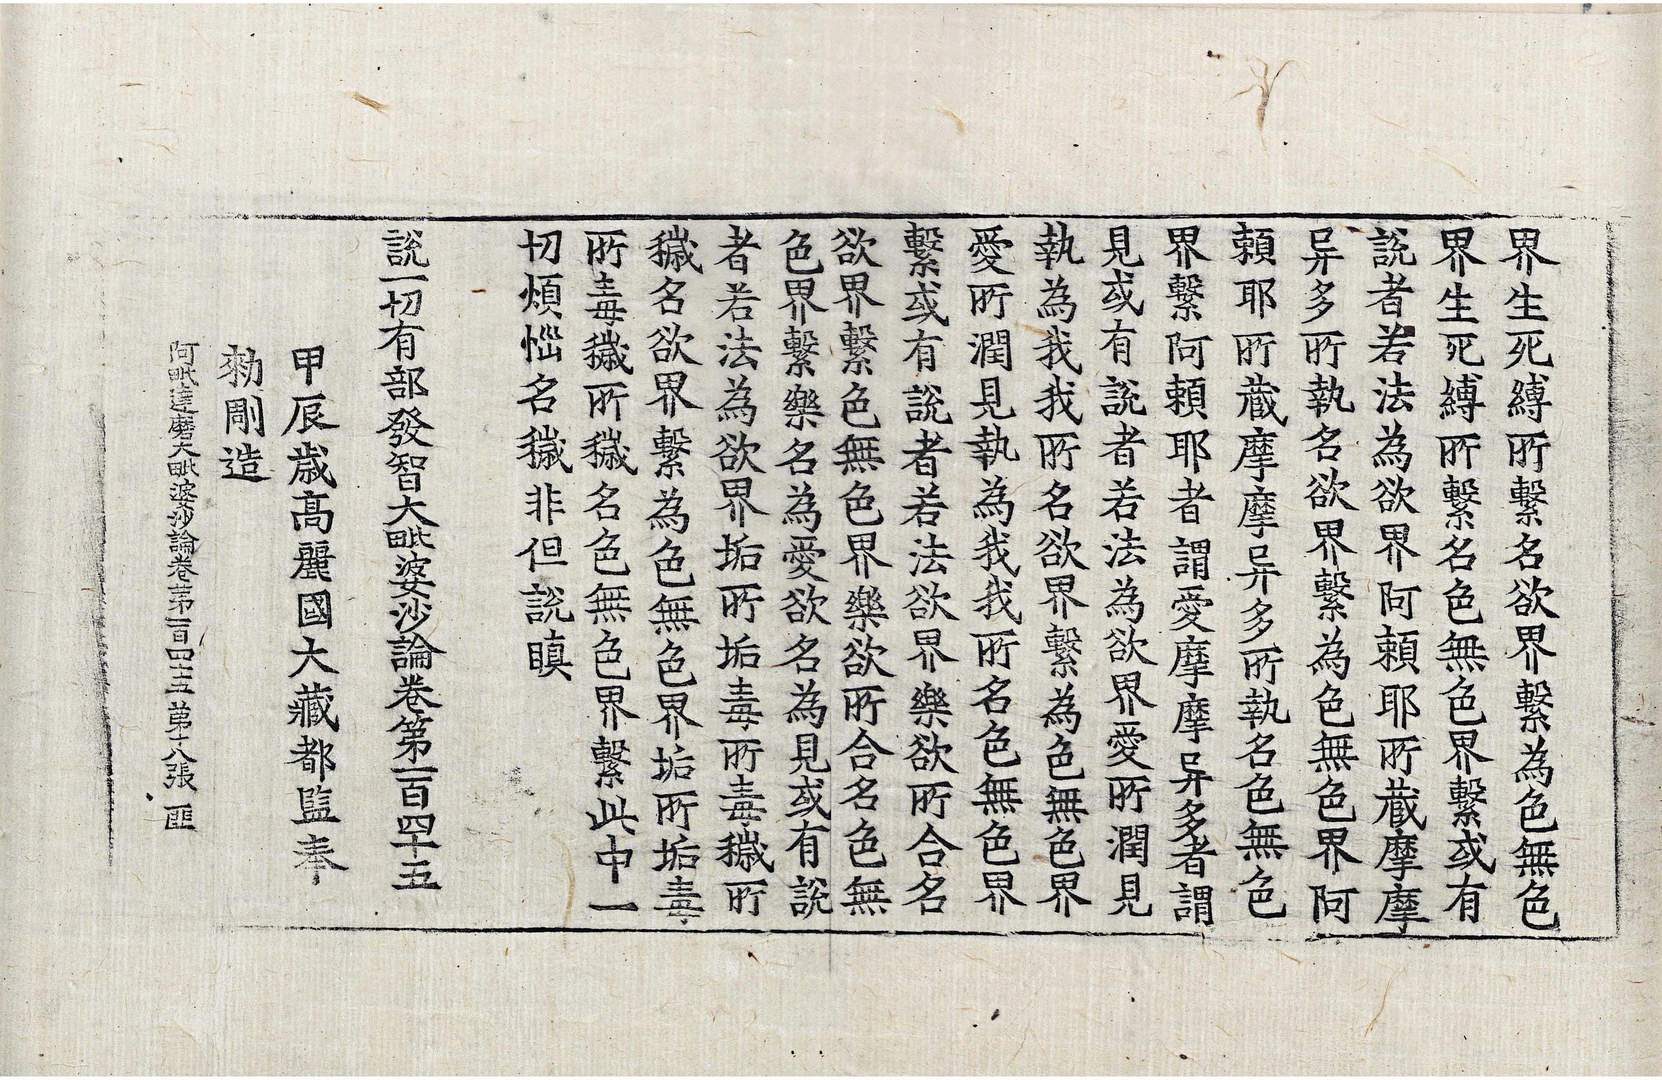 界生死縛所繫名欲界繫為色無色
界生死縛所繫名色無色界繫或有
說者若法為欲界阿頼耶所藏摩摩
异多所執名欲界繫為色無色界阿
頼耶所藏摩摩异多所執名色無色
界繫阿頼耶者謂愛摩摩异多者謂
見或有說者若法為欲界愛所潤見
執為我我所名欲界繫為色無色界
愛所潤見執為我我所名色無色界
繫或有說者若法欲界樂欲所合名
欲界繫色無色界樂欲所合名色無
色界繫樂名為愛欲名為見或有說
者若法為欲界垢所垢毒所毒穢所
穢名欲界繫為色無色界垢所垢毒
所毒穢所穢名色無色界繫此中一
切煩惱名穢非但說瞋
說一切有部發智大毗婆沙論卷第一百四十五
甲辰歲高麗國大藏都監奉
勑彫造
阿毗達磨大毗婆沙論卷第一百四十五 第十八張 匪